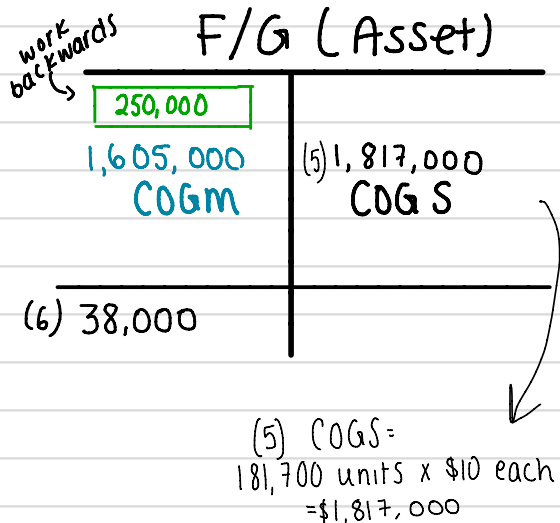 F/G (Asset)
work
backwards
250,000
1,605,000
COGM
(5) 1,817,000
COGS
(6) 38,000
(5) COGS=
181,700 units x $10 each
=$1,817,000